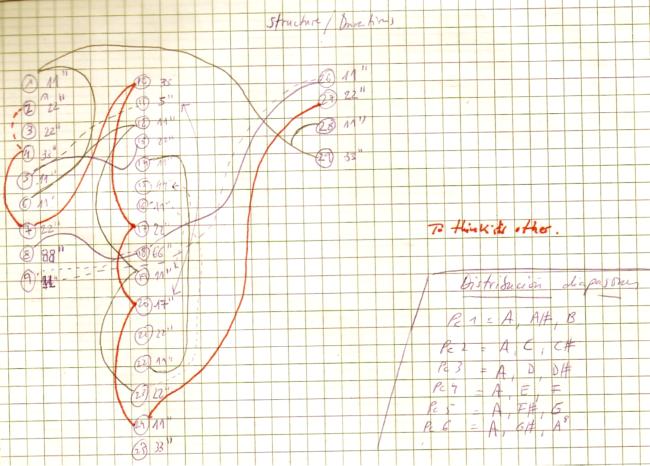 Structure / Durations
1 11"
2 22"
3 22"
4 33"
5 11"
6 11"
7 22"
8 88"
9
10 33
11 5"
12 11"
13 22"
14 11"
15 44"
16 11"
17 22"
18 66"
19 11"
20 17"
21 22"
22 11"
23 22"
24 11"
25 33"
26 11"
27 22"
28 11"
29 33"
To think other.
Distribución diapasones
Pc 1 = A, A#, B
Pc 2 = A, C, C#
Pc 3 = A, D, D#
Pc 4 = A, E, F
Pc 5 = A, F#, G
Pc 6 = A, G#, A8